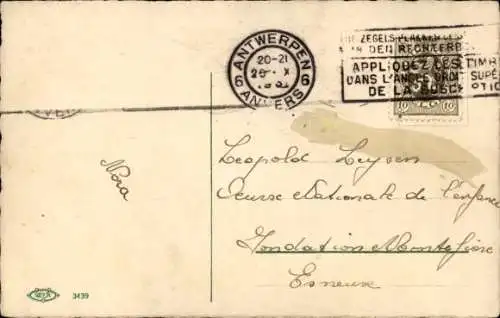 ANTWERPEN
6 6
20-21
ANVERS
DE ZEGELS PLAKKEN
DEN RECHTER
APPLIQUEZ LES TIMB
DANS L'ANGLE DROIT SUPÉ
DE LA SUSCRIPTIO
10 10
Nora
Leopold Leysen
Oeuvre Nationale de l'enfance
Fondation Montefiore
Esneux
3439